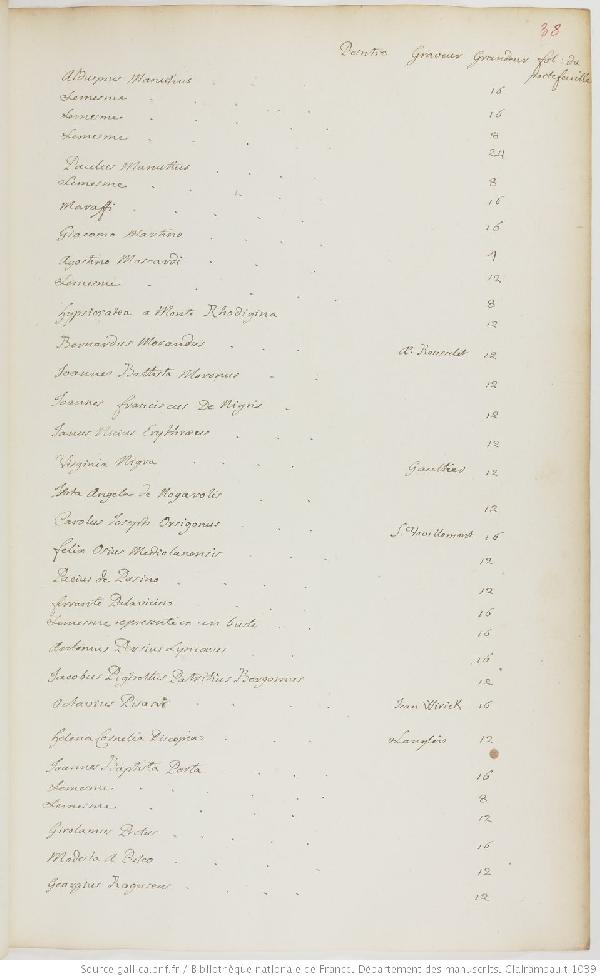 38
Peintre Graveur Grandeur fol: du
portefeuille
Aldus pius Manutius 16
Lemesme 16
Lemesme 8
Lemesme 24
Paulus Manutius 8
Lemesme 16
Maraffi 16
Giacomo Martino 4
Agostino Mascardi 12
Lemesme 8
hypsicratea a Monte Rhodigina 12
Bernardus Morandus Æ. Rousselet 12
Joannes Battista Moronus 12
Joannes franciscus De Nigris 12
Janus Nicius Erythraeus 12
Virginia Nigra Gaultier 12
Angela de Nogarolis 12
Carolus Joseph Orsigonus 16
felix Osius Mediolanensis 12
Pacius de Pasino 12
ferrante Palavicino 16
Lemesme representé en un buste 16
Antonius Persius Lyncaeus 16
Jacobus Pigisottus Patritius Bergomus 12
Octavius Pisani Jean Wirick 16
helena Cornelia Piscopia Langlois 12
Joannes Baptista Porta 16
Lemesme 8
Lemesme 12
Girolamus 16
Modesta A Puteo 12
Georgius Raguseus 12
Source gallica.bnf.fr / Bibliothèque nationale de France. Département des manuscrits. Clairambault 1039